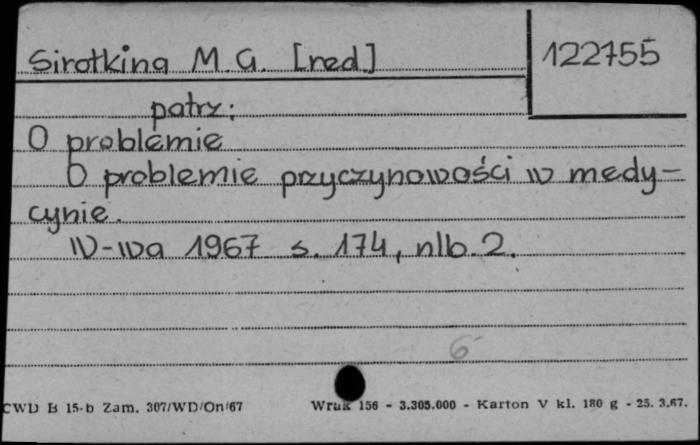 Sirotkina M. G. [red]
122755
patrz:
O problemie
O problemie przyczynowości w medy-
cynie.
W-wa 1967 s. 174, nlb. 2.
6
CWD B 15-b Zam. 307/WD/On/67
Wruk 156 - 3.305.000 - Karton V kl. 180 g - 25. 3.67.